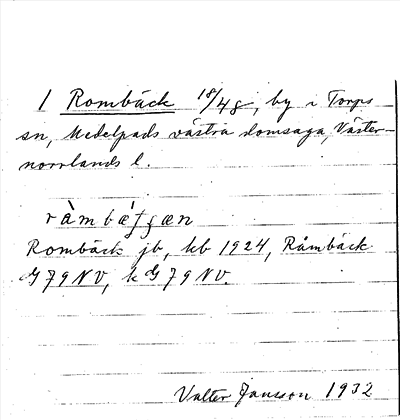 1 Rombäck 18/48, by i Torps
sn, Medelpads västra domsaga, Väster-
norrlands l.
ràmbæ̀fgæn
Rombäck jb, kb 1924, Råmbäck
G 79 NV, k G 79 NV.
Valter Jansson 1932